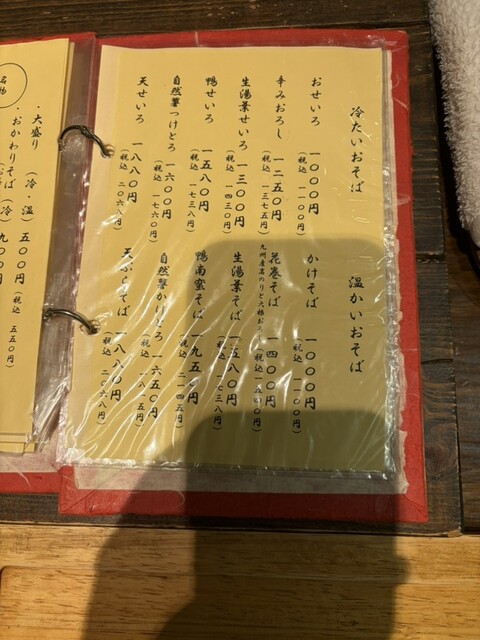 冷たいおそば
おせいろ 一〇〇〇円
（税込 一一〇〇円）
辛みおろし 一二五〇円
（税込 一三七五円）
生湯葉せいろ 一三〇〇円
（税込 一四三〇円）
鴨せいろ 一五八〇円
（税込 一七三八円）
自然薯つけとろ 一六〇〇円
（税込 一七六〇円）
天せいろ 一八八〇円
（税込 二〇六八円）
温かいおそば
かけそば 一〇〇〇円
（税込 一一〇〇円）
花巻そば 一四〇〇円
九州産
（税込 一五四〇円）
生湯葉そば 一五八〇円
（税込 一七三八円）
鴨南蛮そば 一九五〇円
（税込 二一四五円）
自然薯かけとろ 一六五〇円
（税込 一八一五円）
天ぷらそば 一八八〇円
（税込 二〇六八円）
名物
・大盛り （冷・温） 五〇〇円 （税込 五五〇円）
・おかわりそば （冷） 九〇〇円